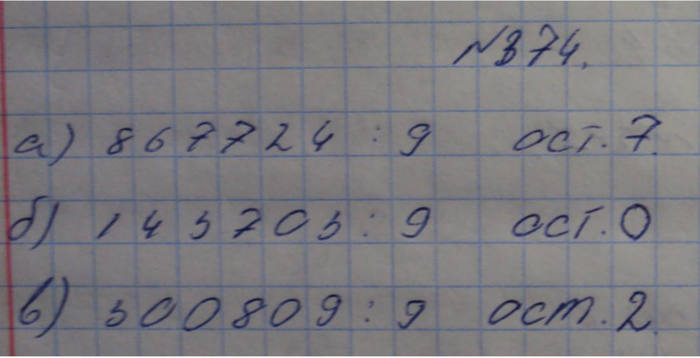 №374.
а) 867724 : 9 ост. 7.
б) 143703 : 9 ост. 0
в) 300809 : 9 ост. 2